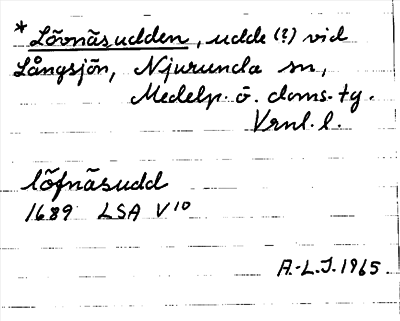 *Lövnäsudden, udde (?) vid
Långsjön, Njurunda sn,
Medelp. ö. doms. tg.
Vrnl. l.
löfnäsudd
1689 LSA V¹⁰
A.-L.J. 1965.